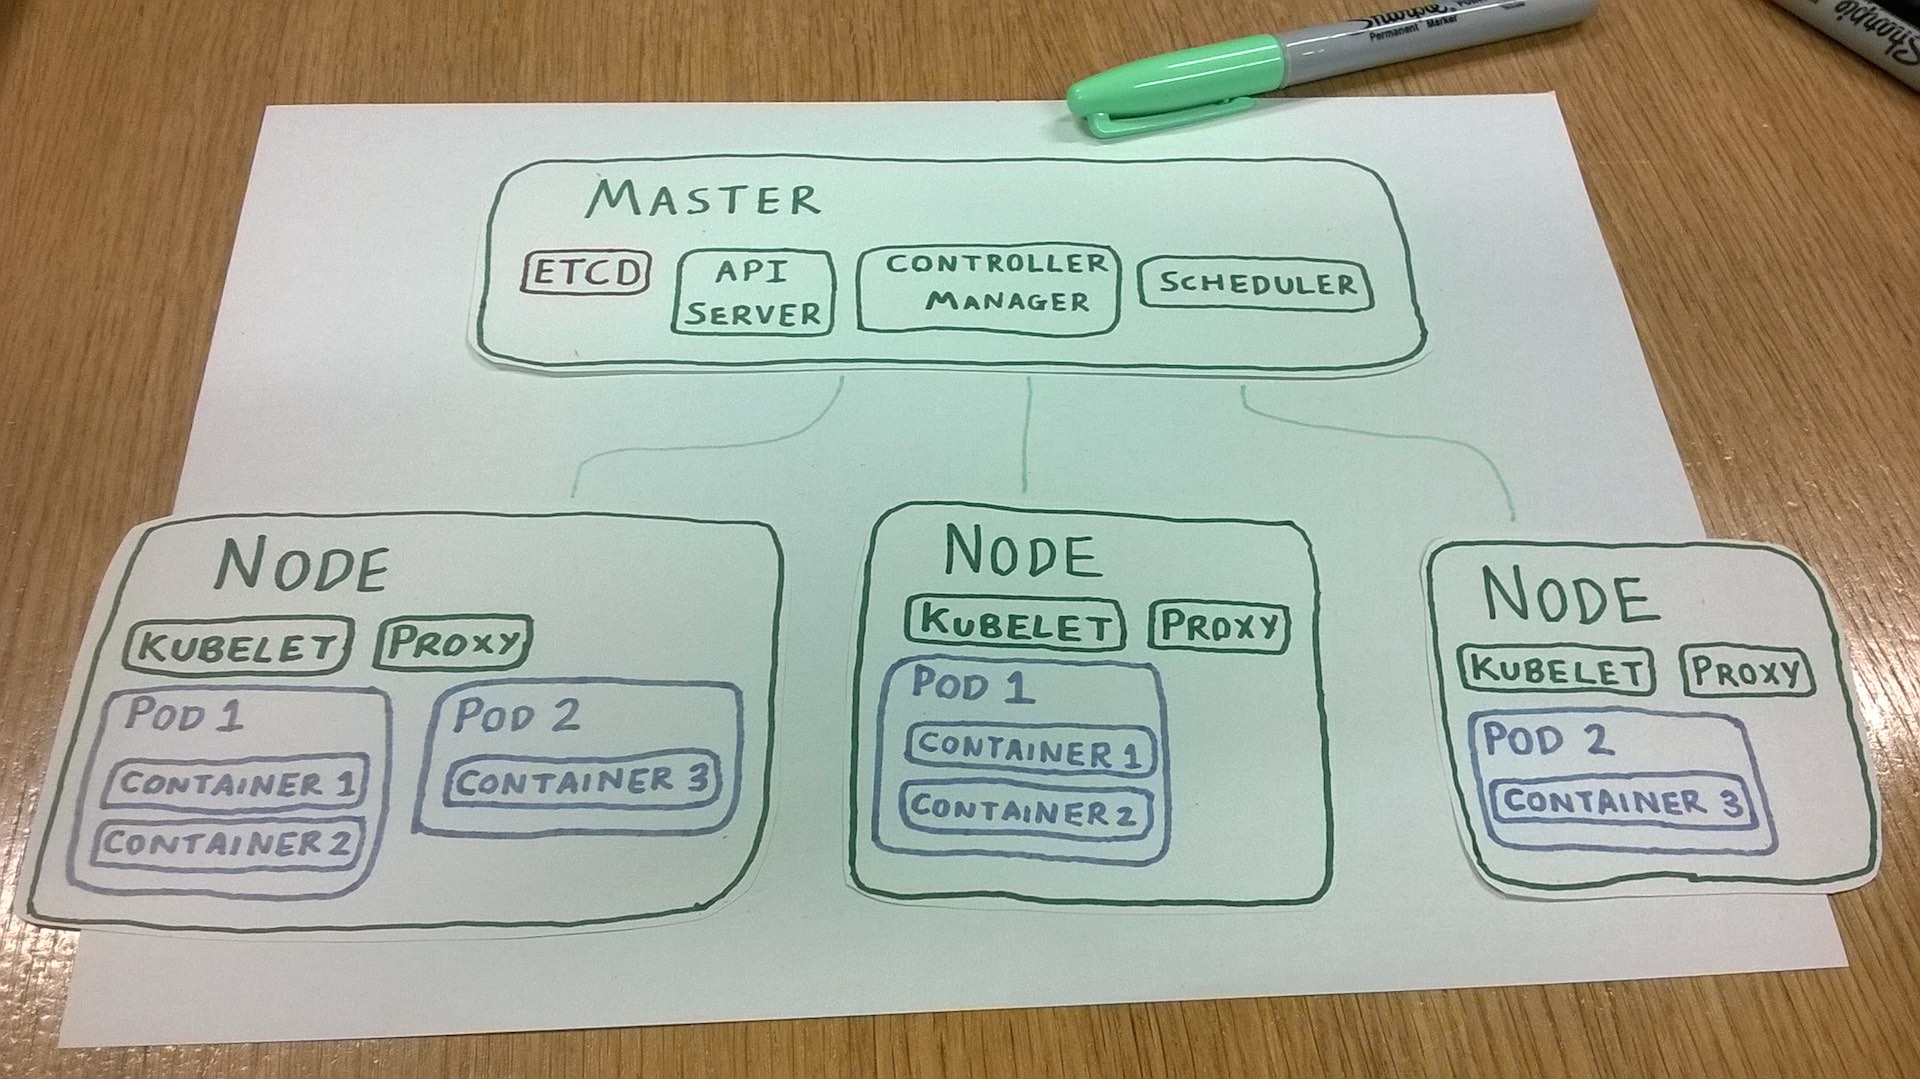 Sharpie
Permanent Marker
Sharpie
MASTER
ETCD
API
SERVER
CONTROLLER
MANAGER
SCHEDULER
NODE
KUBELET
PROXY
POD 1
CONTAINER 1
CONTAINER 2
POD 2
CONTAINER 3
NODE
KUBELET
PROXY
POD 1
CONTAINER 1
CONTAINER 2
NODE
KUBELET
PROXY
POD 2
CONTAINER 3